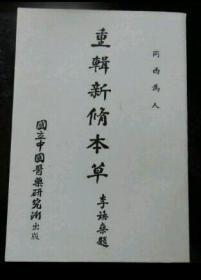 岡西為人
重輯新脩本草
李煥燊題
國立中國医藥研究所出版